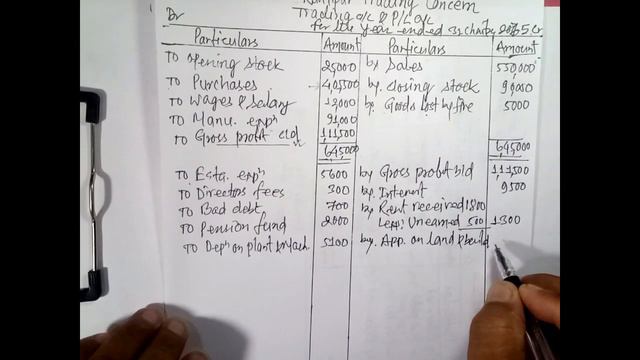 Trading Concern
Dr Trading a/c & P/L a/c
for the year ended 31 chaitra 2075 Cr.
Particulars Amount Particulars Amount
To opening stock by Sales 550,000
To Purchases 405500 by. closing stock 90,000
To wages & Salary by. Goods lost by fire 5000
To Manu. exp
To Gross profit c/d 111,500
645,000 645,000
To Esta. exp 5600 by Gross profit b/d 111500
To Directors fees 300 by. Interest 9500
To Bad debt 700 by Rent received 1800
To Pension fund 2000 Less: Unearned 500 1300
To Depn on plant & Mach 5100 by. App. on land & build